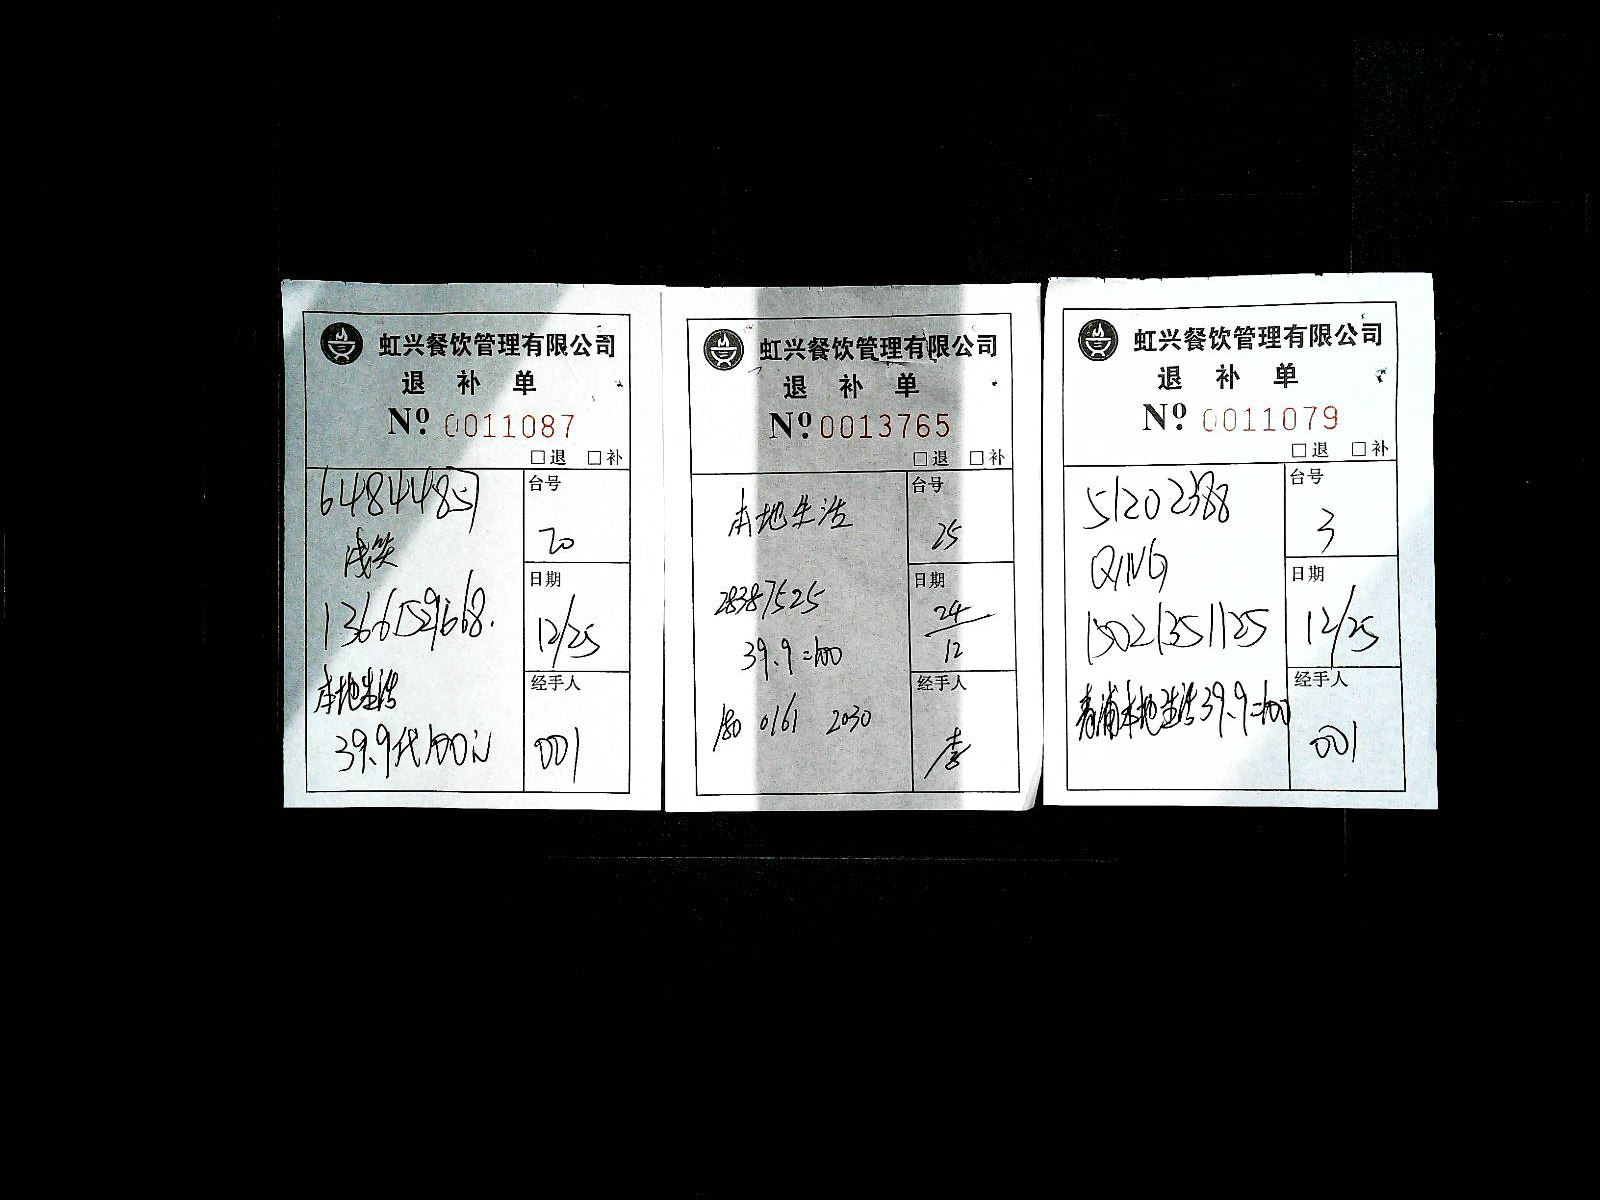 虹兴餐饮管理有限公司
退 补 单
Nº 0011087
□退 □补
648444857
浅笑
13661529668.
本地生活
39.9代100元
台号
20
日期
12/25
经手人
001
虹兴餐饮管理有限公司
退 补 单
Nº 0013765
□退 □补
本地生活
28387525
39.9=100
180 0161 2030
台号
25
日期
24
12
经手人
李
虹兴餐饮管理有限公司
退 补 单
Nº 0011079
□退 □补
51202388
QING
15021351125
青浦本地生活39.9=100
台号
3
日期
12/25
经手人
001